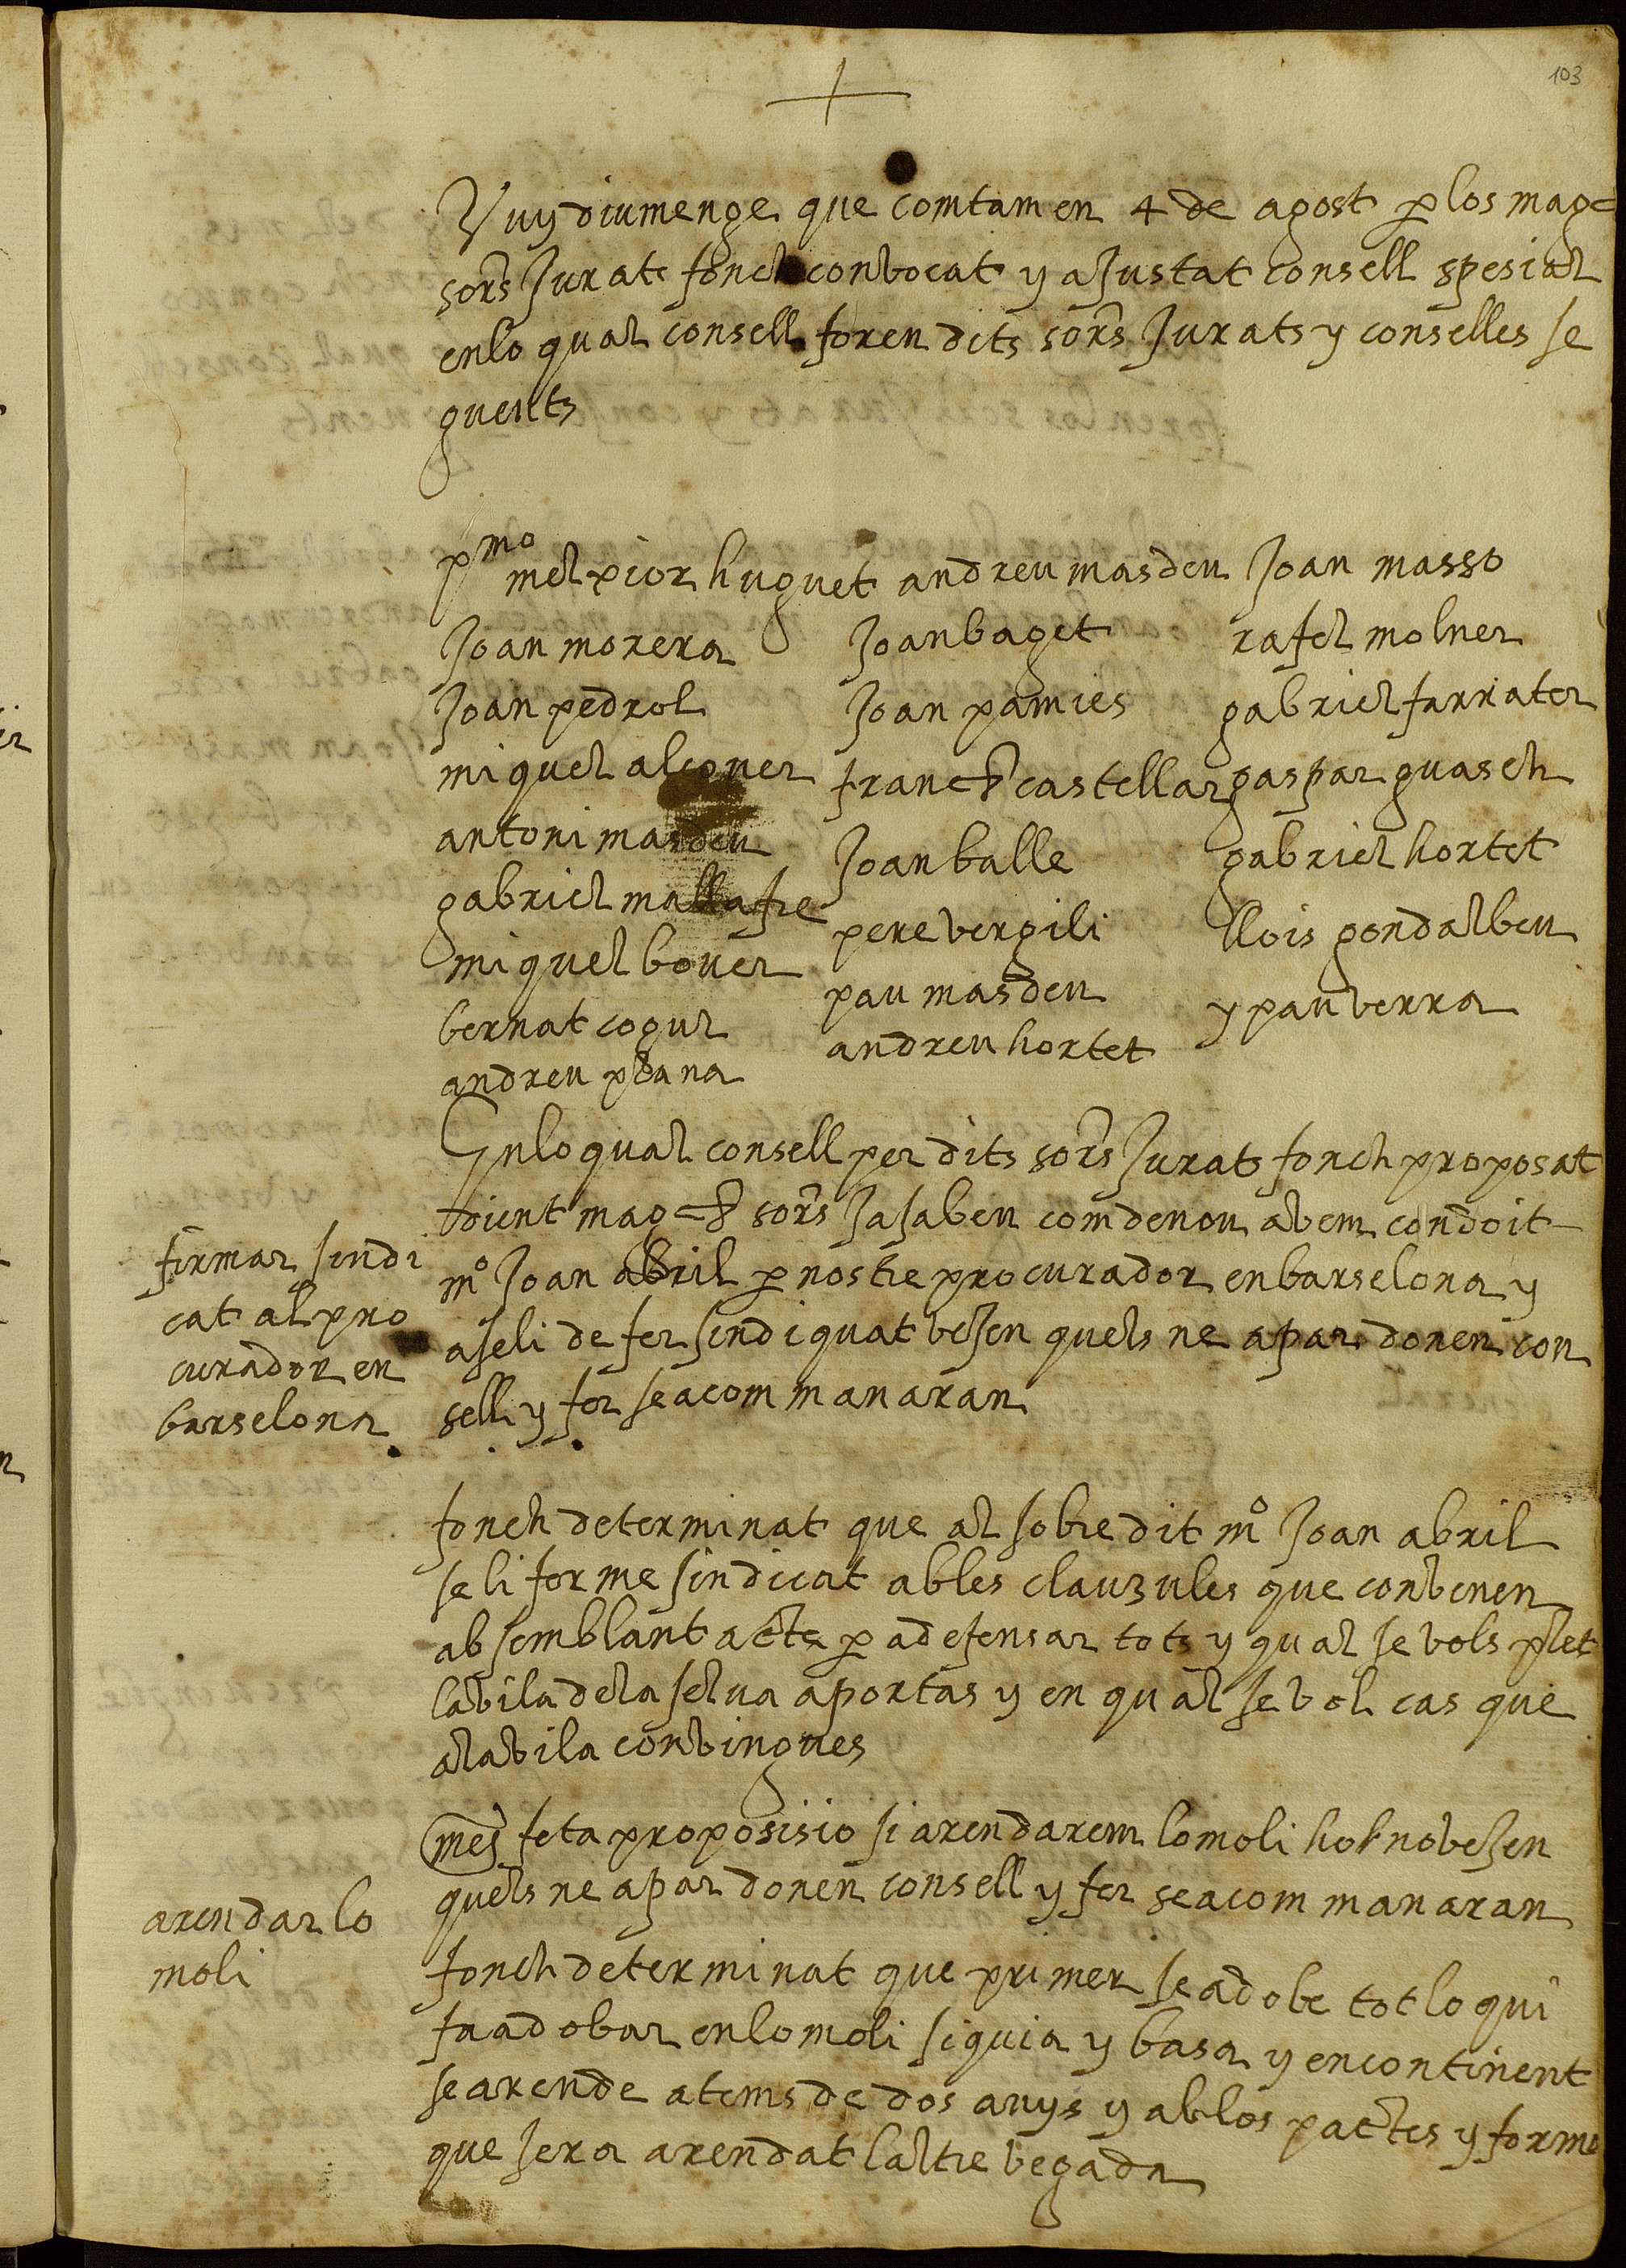 103
Vuy diumenge que comtam en 4 de agost p los magc
sors Jurats fonch convocat y aJustat consell spesial
enlo qual consell foren dits sors Jurats y conselles se
guents
pmo melpior huguet andreu masdeu Joan masso
Joan morera Joan baget rafel molner
Joan pedrol Joan pamies gabriel farrater
miquel alcover franch castellar gaspar guasch
antoni masdeu Joan balle gabriel hortet
gabriel mallafre pere vergili llois gondalbeu
miquel bover pau masdeu y pau verra
bernat cogul andreu hortet
andreu plana
Enlo qual consell per dits sors Jurats fonch proposat
dient magcs sors Ja saben com de nou abem condoit
mo Joan abril p nostre procurador en barselona y
aseli de fer sindiquat veJen quels ne apar donen con
sell y fer se a com manaran
firmar sindi
cat al pro
curador en
barselona
fonch determinat que al sobre dit mo Joan abril
se li forme sindicat ab les clauzules que convenen
ab semblant acte p a defensar tots y qual se vols plet
la vila dela selva aportas y en qual se vol cas que
a la vila convingues
mes feta proposisio si arendarem lo moli ho no veJen
quels ne apar donen consell y fer se a com manaran
arendar lo
moli
fonch determinat que primer se adobe tot lo qui
fa adobar en lo moli siquia y basa y encontinent
se arende a tems de dos anys y ab los pactes y forme
que sera arendat laltre vegada